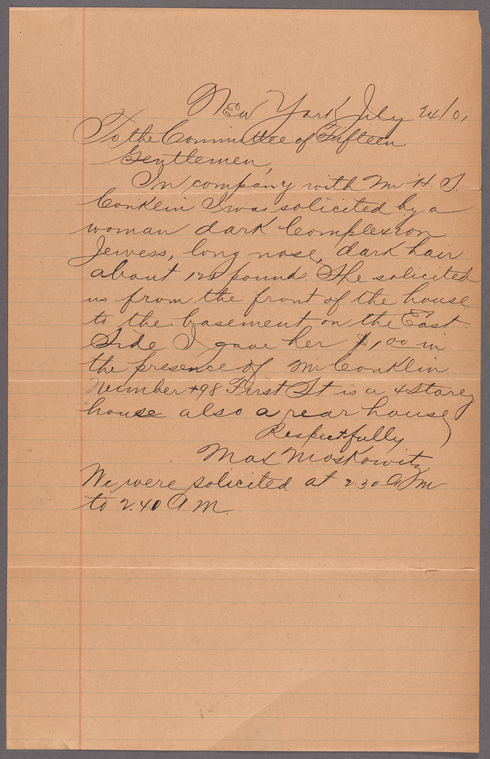 New York July 24/01
To the Committee of Fifteen
Gentlemen,
In company with Mr H T
Conklin I was solicited by a
woman dark Complexion
Jewess, long nose, dark hair
about 125 pound She solicited
us from the front of the house
to the basement on the East
Side I gave her $1,00 in
the presence of Mr Conklin
Number 98 First St is a 4 Storey
house also a rear house
Respectfully
Max Moskowitz
We were solicited at 2.30 A M
to 2.40 A.M.